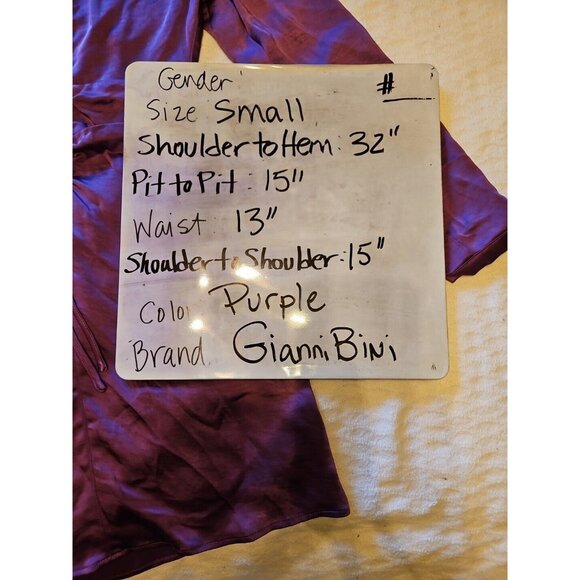 Gender #
Size Small
Shoulder to Hem: 32"
Pit to Pit: 15"
Waist 13"
Shoulder to Shoulder: 15"
Color Purple
Brand. Gianni Bini